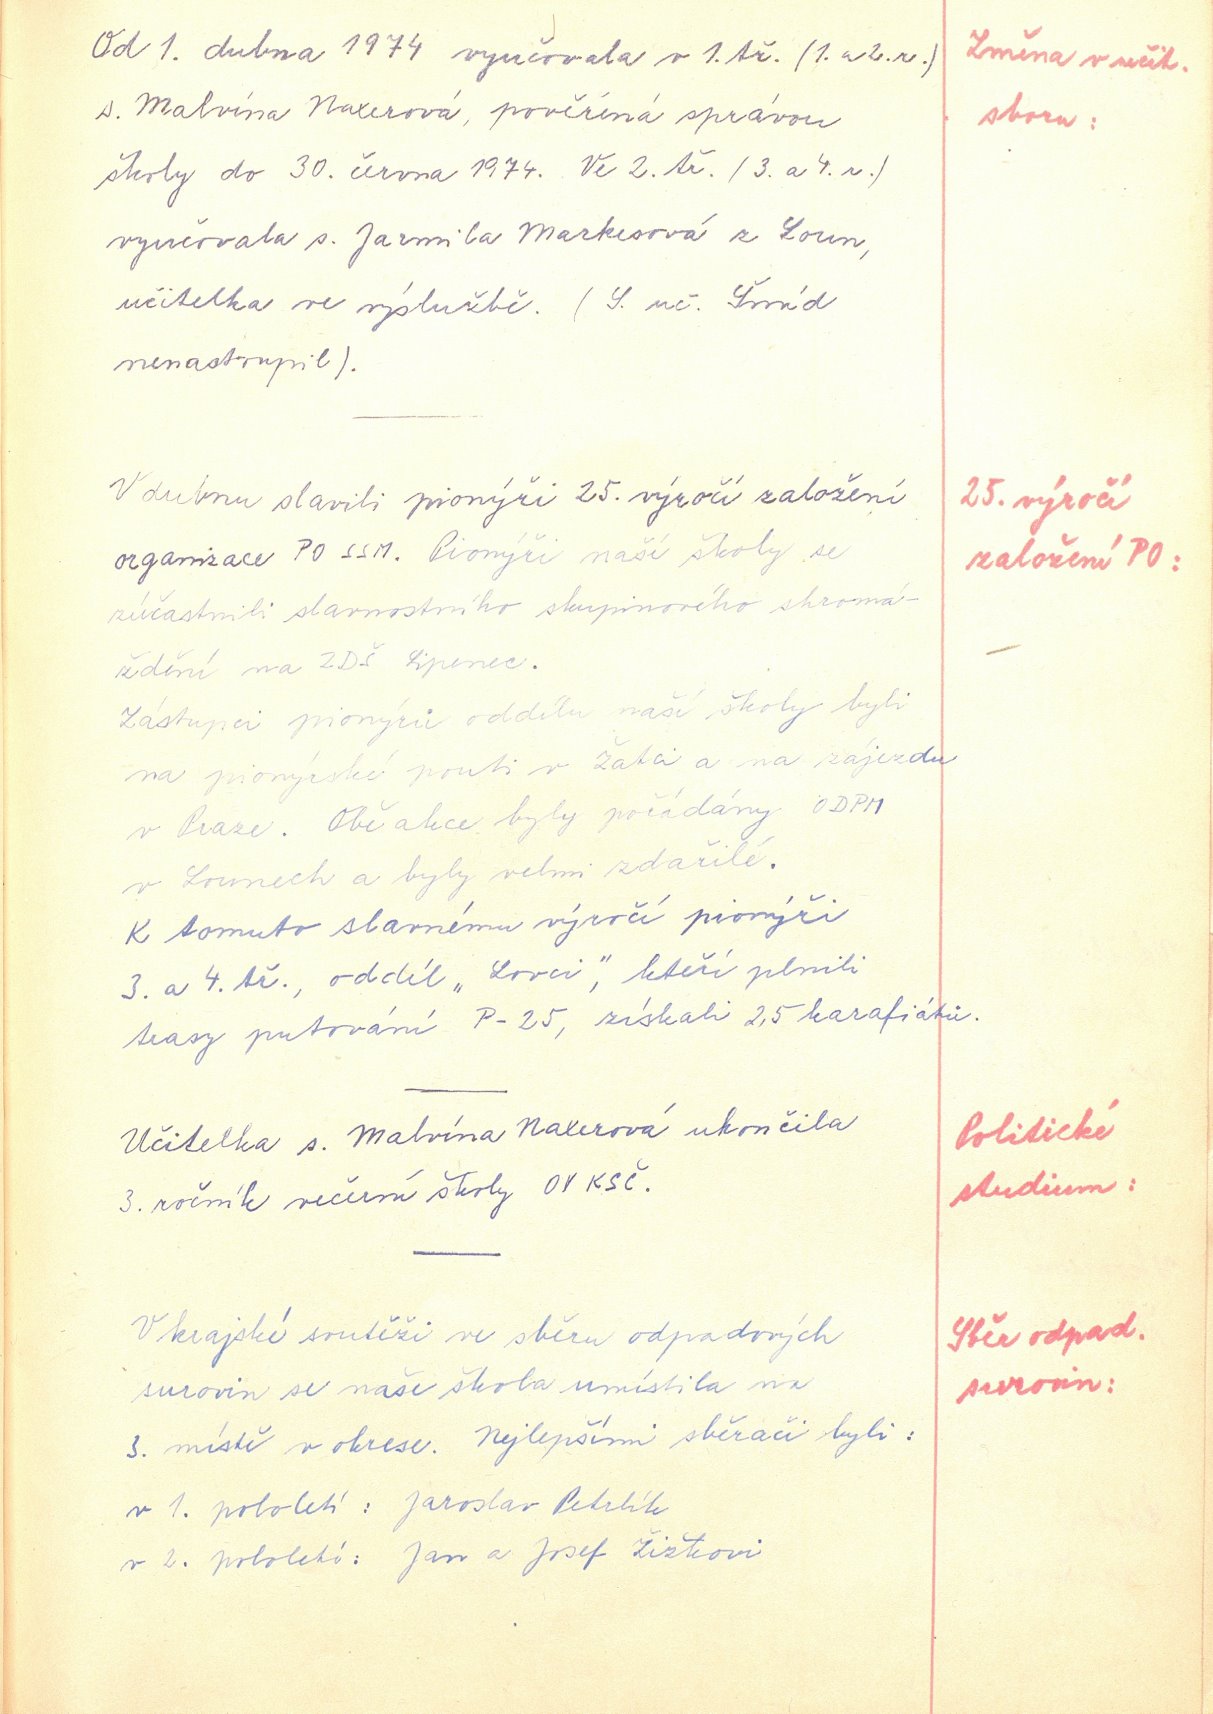 Od 1. dubna 1974 vyučovala v 1. tř. (1. a 2. r.)
Změna v učit.
s. Malvína Naxerová, pověřená správou
sboru:
školy do 30. června 1974. Ve 2. tř. (3. a 4. r.)
vyučovala s. Jarmila Markesová z Loun,
učitelka ve výslužbě. (S. uč. Šmíd
nenastoupil).
V dubnu slavili pionýři 25. výročí založení
25. výročí
organizace PO SSM. Pionýři naší školy se
založení PO:
zúčastnili slavnostního skupinového shromá-
ždění na ZDŠ Lipenec.
Zástupci pionýrů oddílu naší školy byli
na pionýrské pouti v Žatci a na zájezdu
v Praze. Obě akce byly pořádány ODPM
v Lounech a byly velmi zdařilé.
K tomuto slavnému výročí pionýři
3. a 4. tř., oddíl „Lovci", kteří plnili
trasy putování P-25, získali 2,5 karafiátů.
Učitelka s. Malvína Naxerová ukončila
Politické
3. ročník večerní školy OV KSČ.
studium:
V krajské soutěži ve sběru odpadových
Sběr odpad.
surovin se naše škola umístila na
surovin:
3. místě v okrese. Nejlepšími sběrači byli:
v 1. pololetí: Jaroslav Petrlík
v 2. pololetí: Jan a Josef Žižkovi